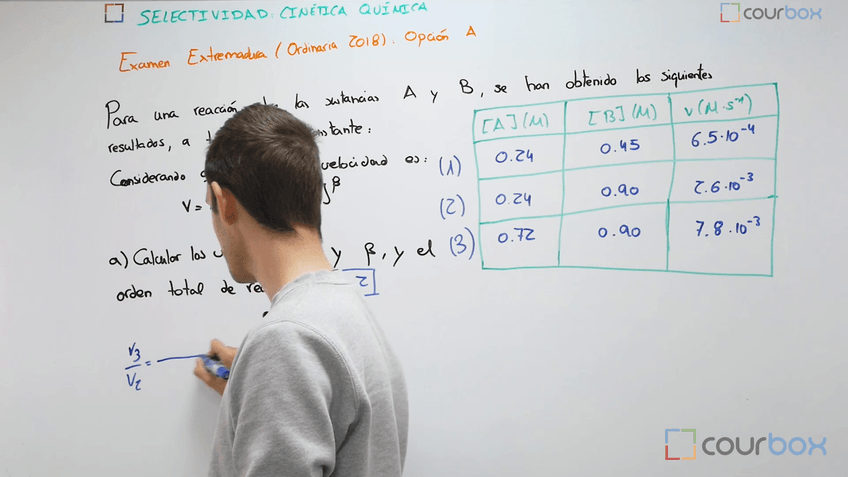 SELECTIVIDAD: CINÉTICA QUÍMICA
courbox
Examen Extremadura (Ordinaria 2018). Opción A
Para una reacción las sustancias A y B, se han obtenido los siguientes
resultados, a constante:
Considerando velocidad es:
V = ]β
a) Calcular los y β, y el
orden total de
2
[A](M) [B](M) v(M·s⁻¹)
(1) 0.24 0.45 6.5·10⁻⁴
(2) 0.24 0.90 2.6·10⁻³
(3) 0.72 0.90 7.8·10⁻³
V3
V2 =
courbox